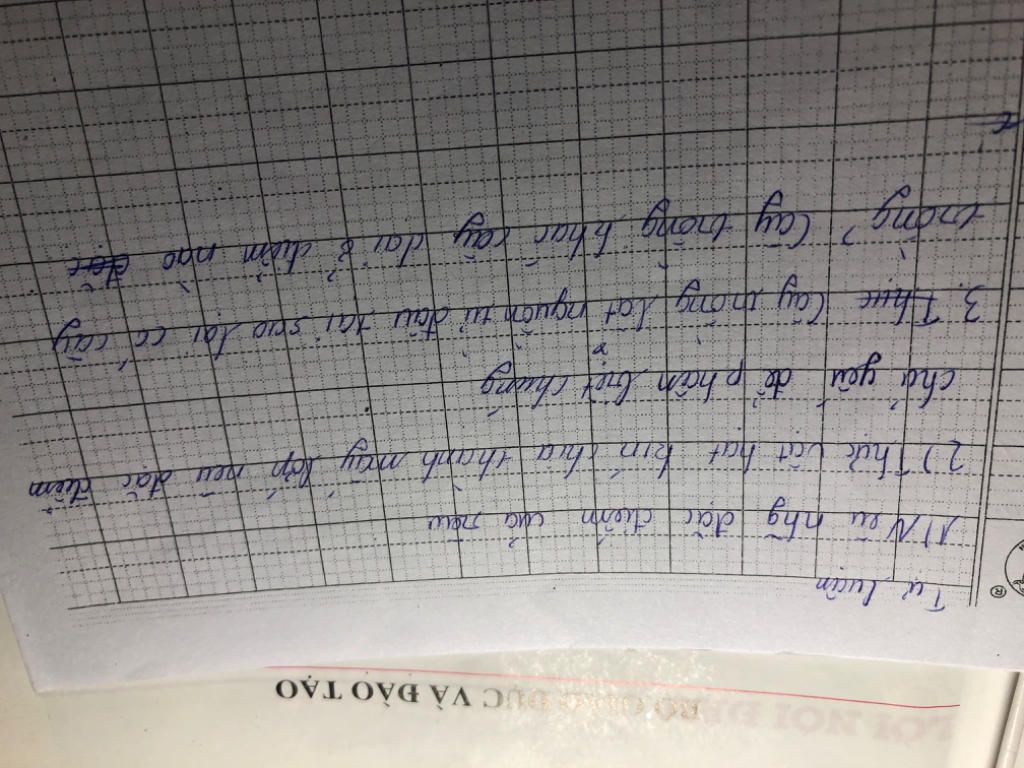 LỜI NÓI ĐẦU
BỘ GIÁO DỤC VÀ ĐÀO TẠO
Tự luận
1) Nêu nhg đặc điểm của nấm
2) Thực vật hạt kín chia thành mấy lớp nêu đặc điểm
chủ yếu để phân biệt chúng
3. Thực Cây trồng bắt nguồn từ đâu tại sao lại có cây
trồng? Cây trồng khác cây dại ở điểm nào đặc
®